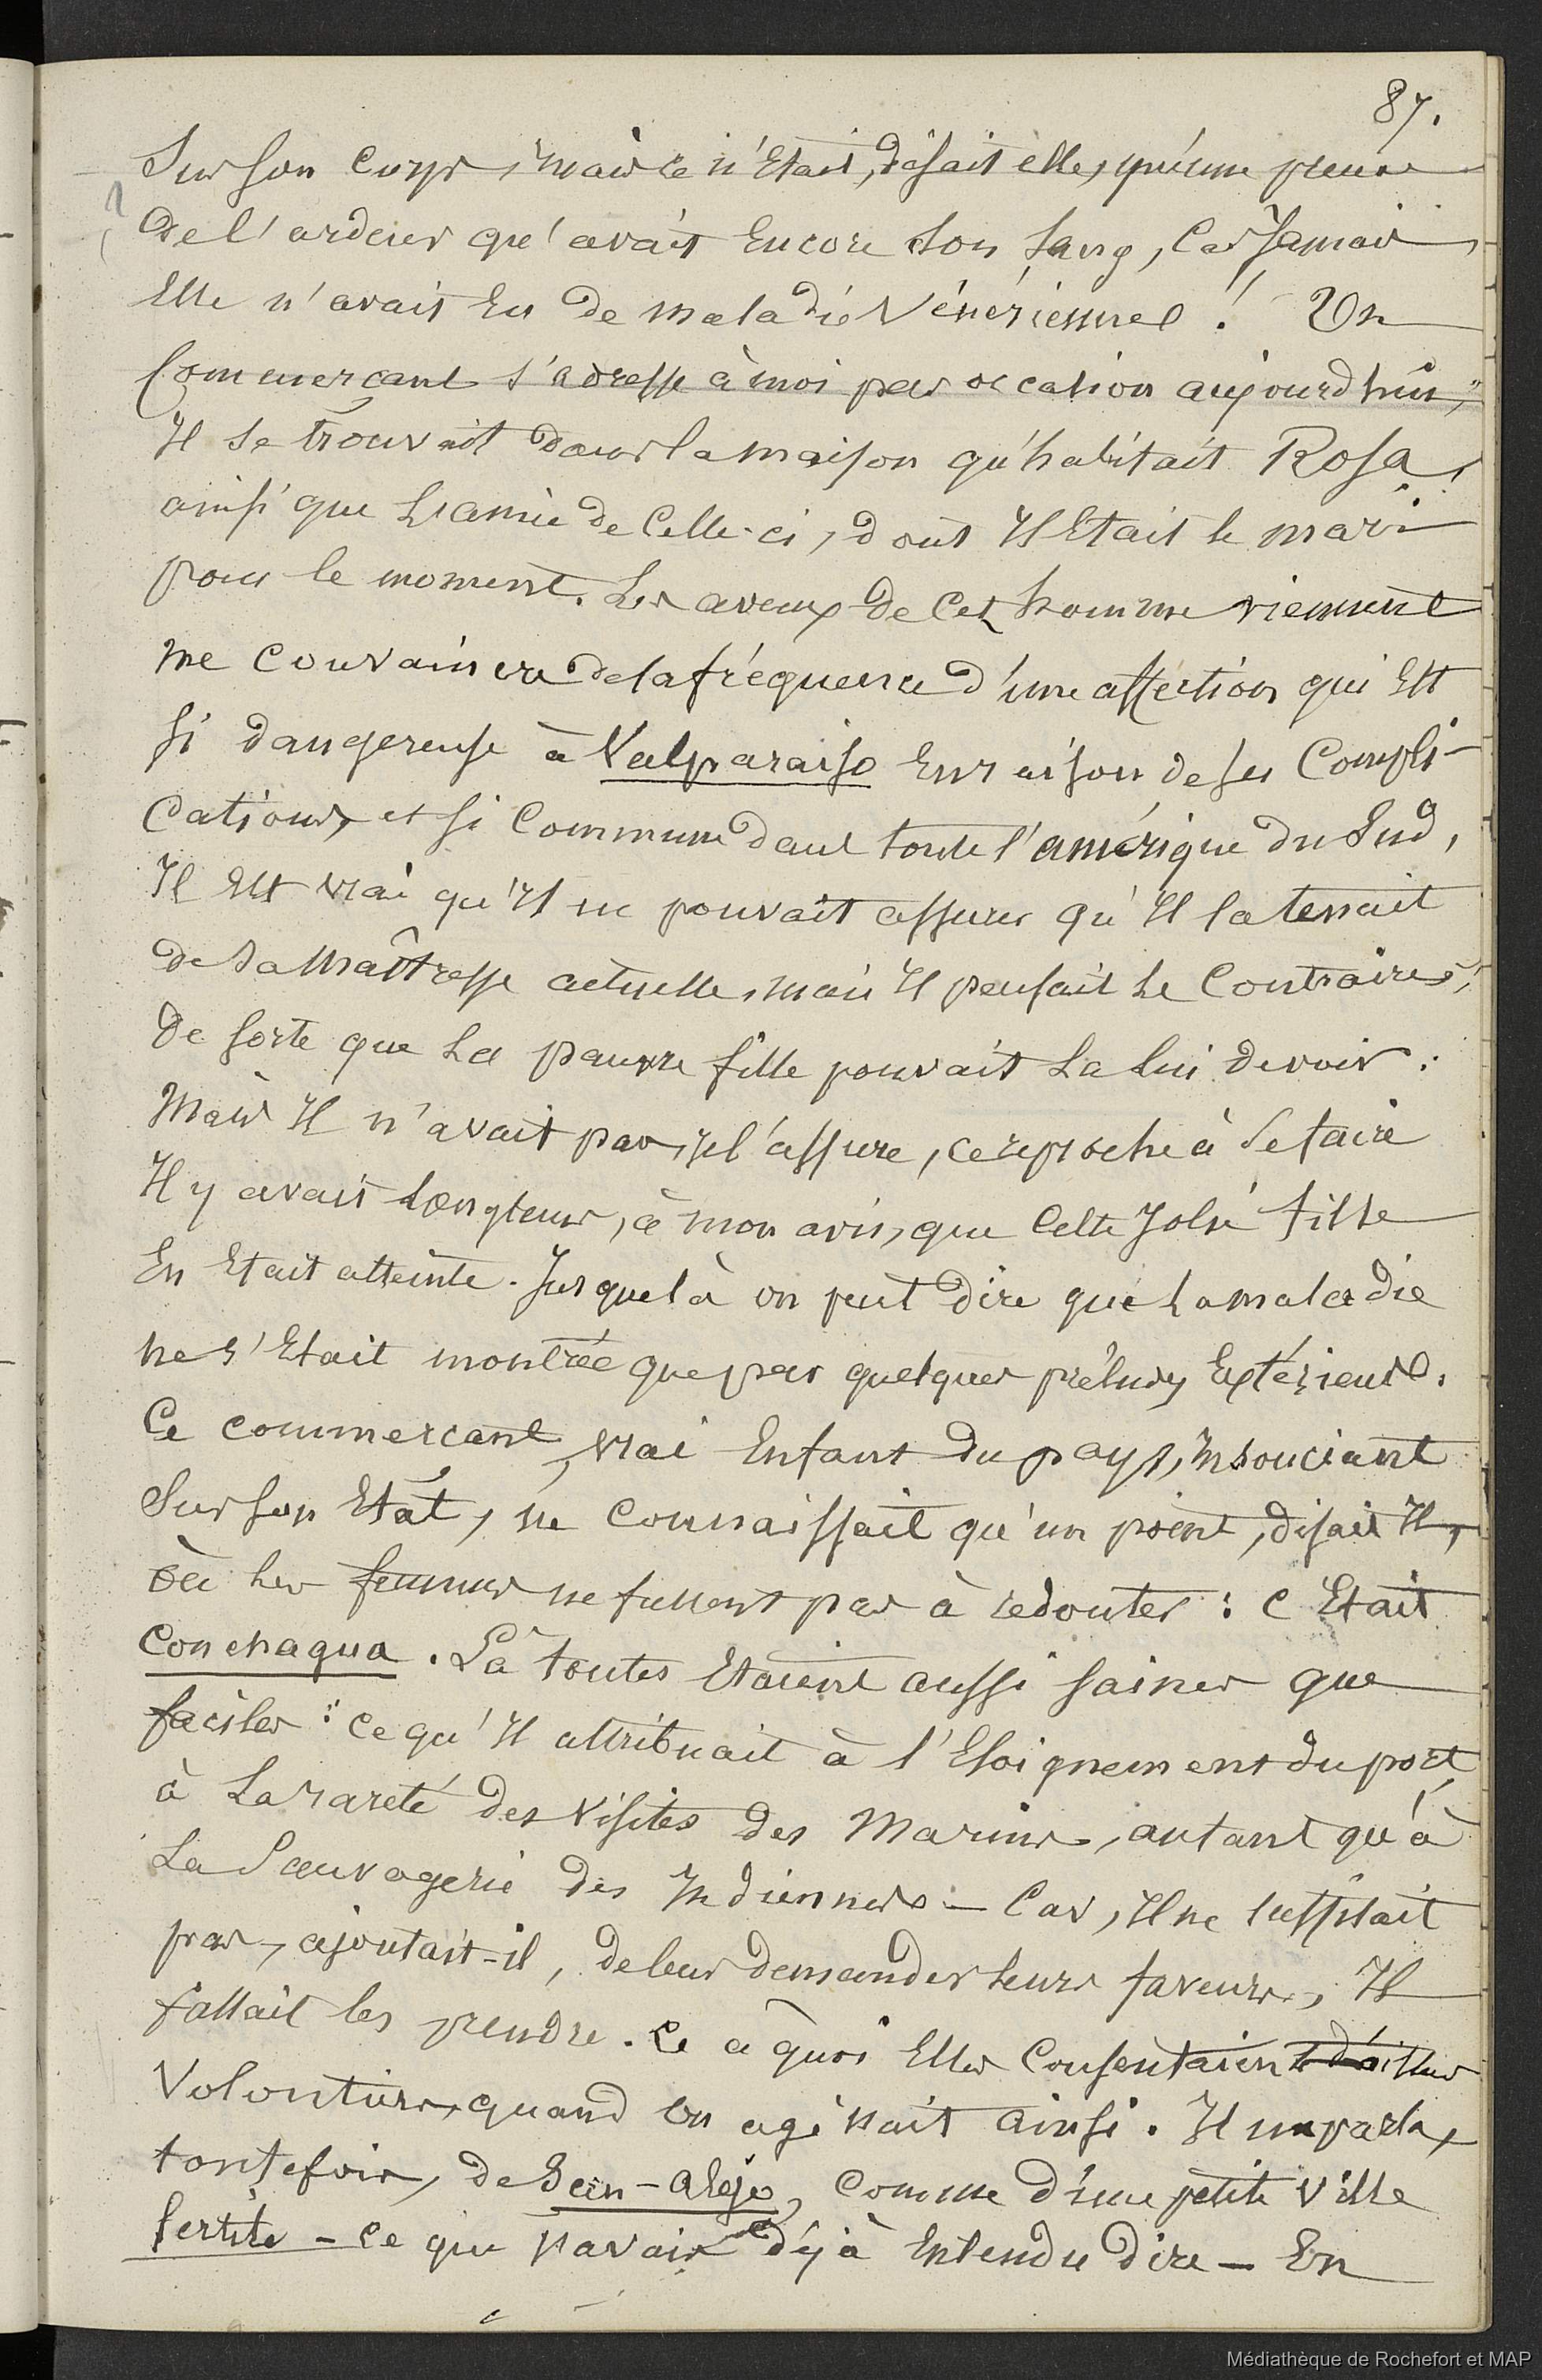 87.
Sur son corps, mais ce n'Etait, disait elle, qu'une preuve
De l'ardeur qu'avait Encore Son Sang, Car Jamais
Elle n'avait Eu de maladie Vénériennes ! Un
Commerçant s'adresse à moi par occasion aujourd'hui,
Il se trouvait dans la maison qu'habitait Rosa,
ainsi que L'amie de Celle-ci, dont Il Etait le mari
pour le moment. Les aveux de Cet homme viennent
me Convaincre de la fréquence d'une affection qui Est
si dangereuse à Valparaiso En raison de ses Compli-
Cations, et si Commune dans toute l'amérique du Sud,
Il Est vrai qu'Il ne pouvait assurer qu'Il la tenait
de Sa Maîtresse actuelle, mais Il pensait Le Contraire,
De sorte que La pauvre fille pouvait La lui devoir :
Mais Il n'avait pas, je l'assure, ce reproche à Se faire
Il y avait Longtems, à mon avis, que Cette Jolie fille
En Etait atteinte. Jusque là on peut Dire que La maladie
ne s'Etait montrée que par quelques préludes Extérieurs.
Ce commerçant, vrai Enfant du pays, Insouciant
Sur son Etat, ne Connaissait qu'un point, disait Il,
où les femmes ne fussent pas à redouter : C'Etait
Conchaqua. Là toutes Etaient aussi saines que
faciles : ce qu'Il attribuait à l'Eloignement du port,
à La rareté des Visites des Marins, autant qu'à
La Sauvagerie des Indiennes - Car, Il ne suffisait
pas, ajoutait-il, de leur demander leurs faveurs, Il
fallait les prendre. Ce à quoi Elles Consentaient d'ailleurs
Volontiers, quand on agissait ainsi. Il me parla,
toutefois, de San-Alejo, Comme d'une petite Ville
fertile - Ce que J'avais déjà Entendu Dire - En
Médiathèque de Rochefort et MAP